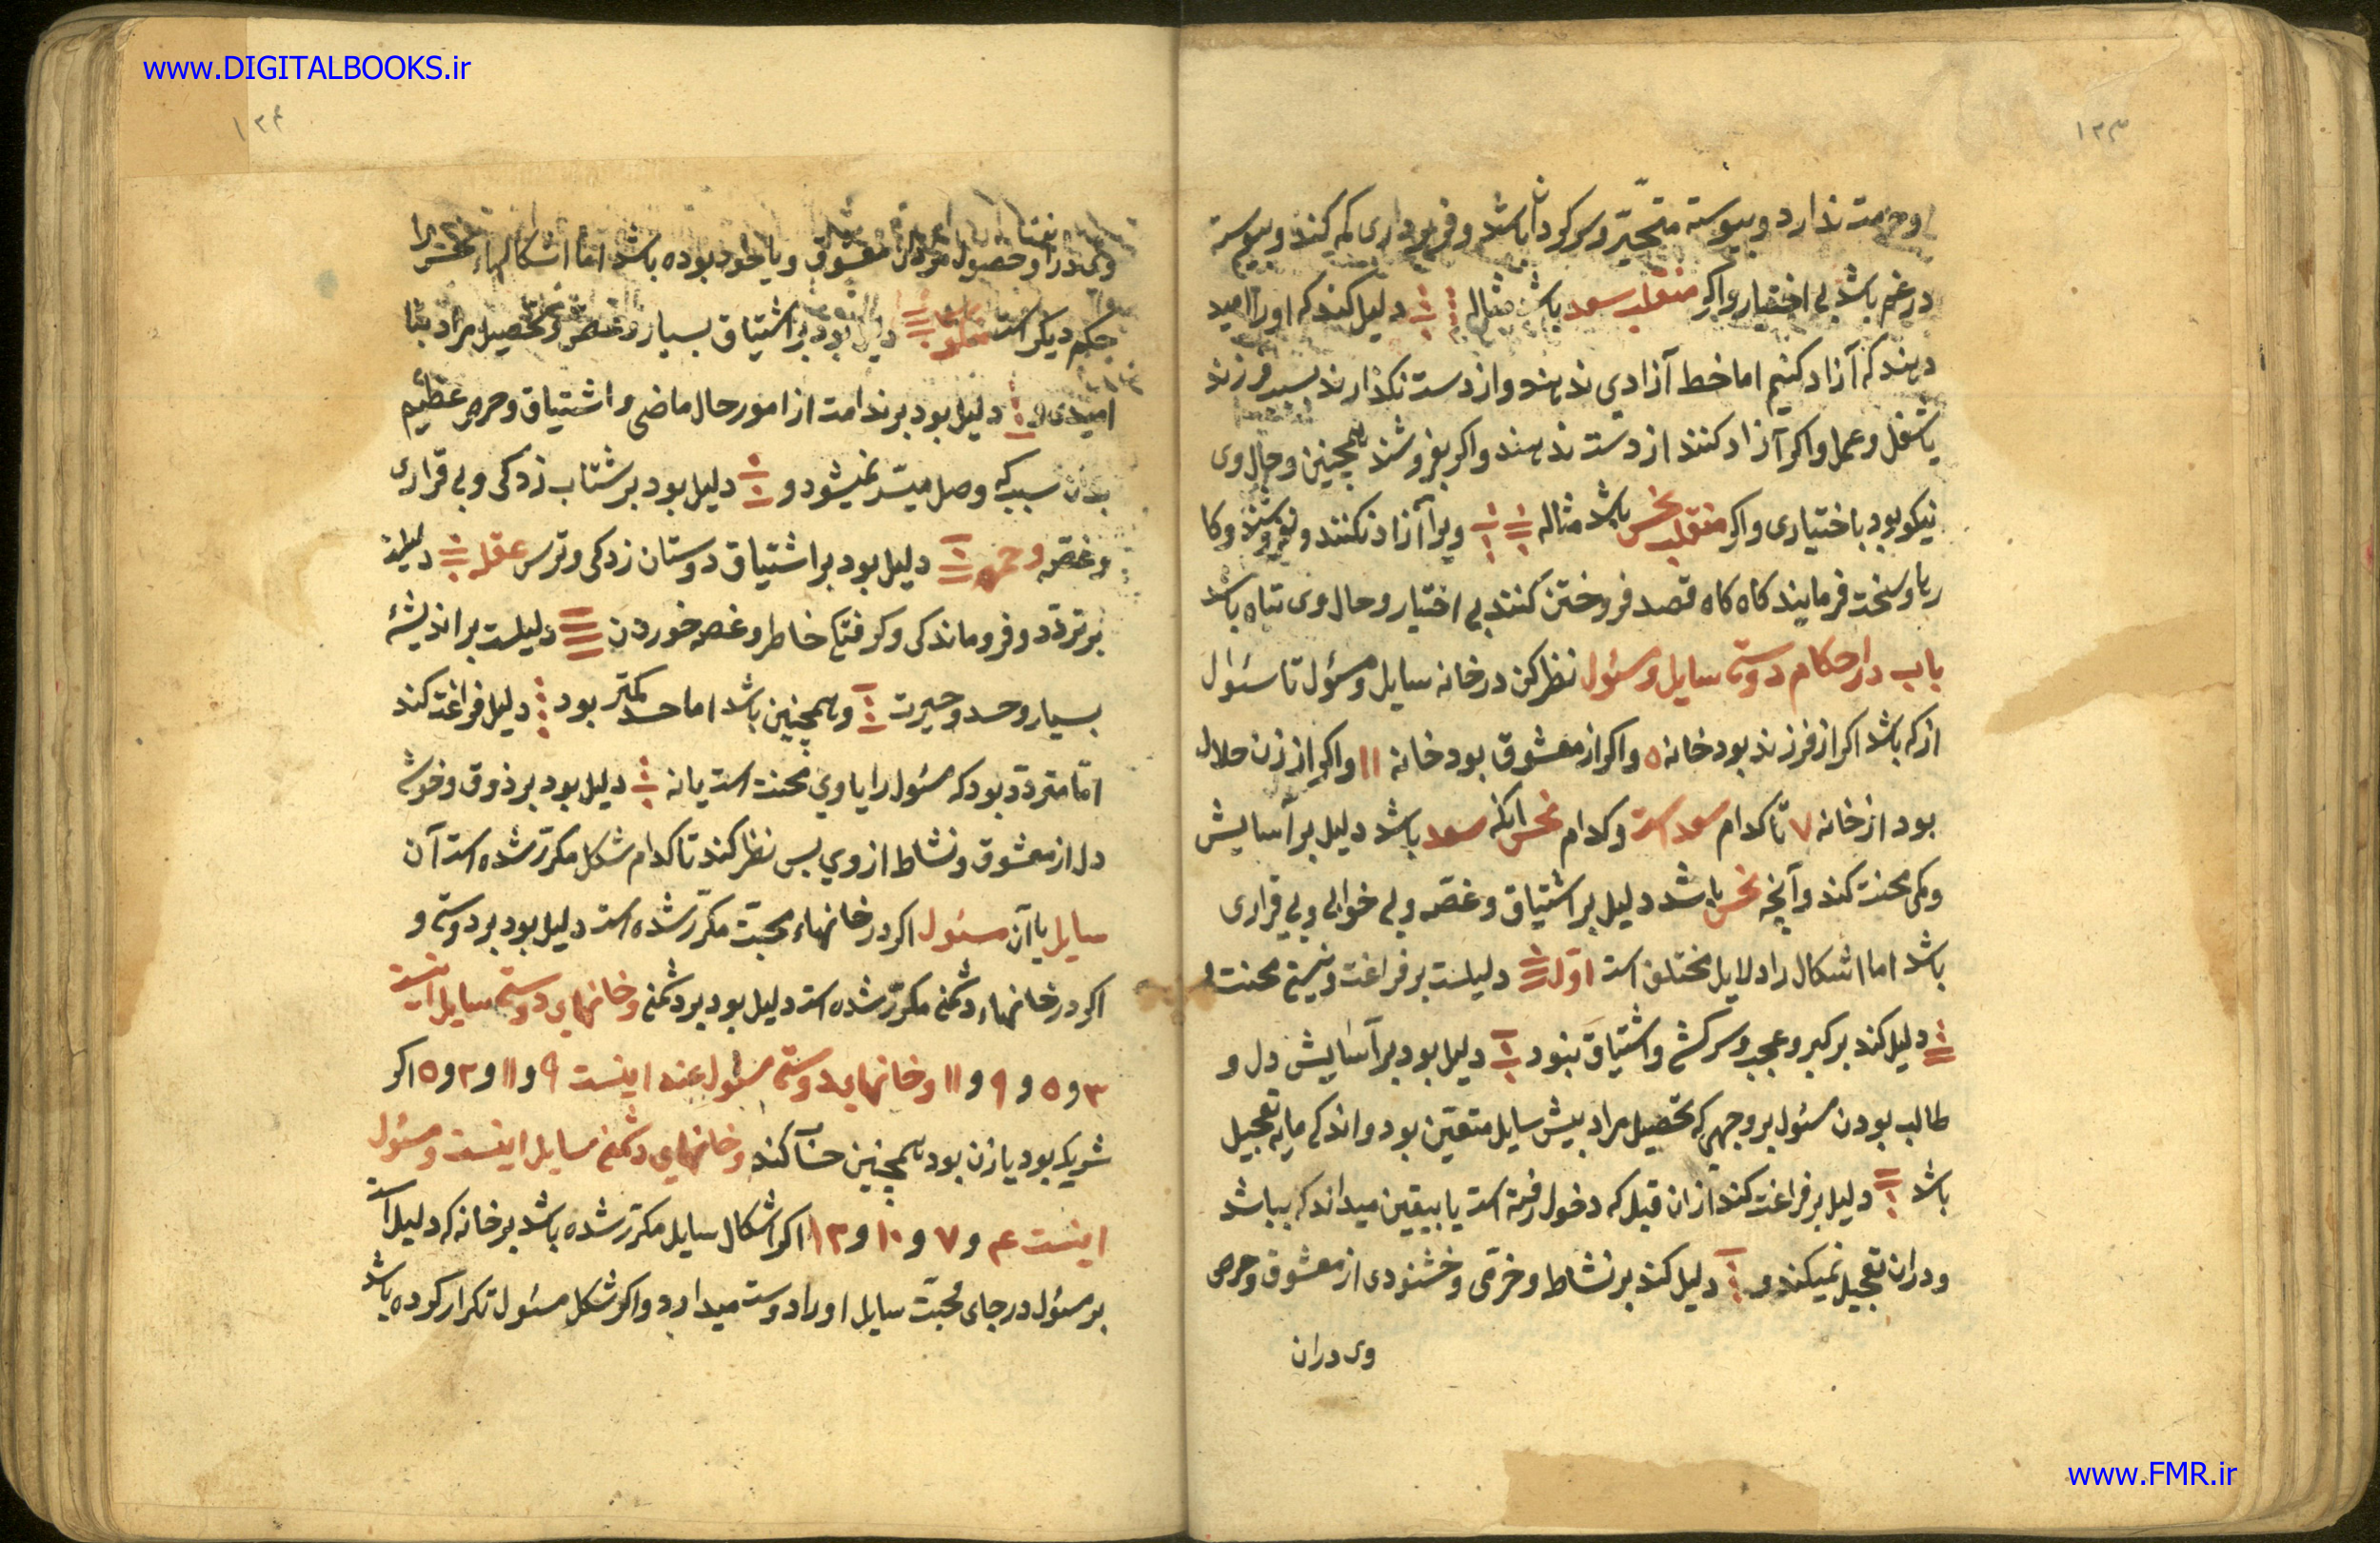 www.DIGITALBOOKS.ir
۱۲۳
او حرمت ندارد و پیوسته متحیّر و سرکردان باشد و فرمانبرداری کم کیند و پیوسته
در غم باشد بی اختیار و اکر منقلب سعد باشد مثاله دلیل کند که او را امید
دهند که آزاد کنیم اما خط آزادی ندهند و از دست نکذارند بسبب فرزند
یا شغل و عمل و اکر آزاد کنند از دست ندهند و اکر بفروشند همچنین و حال وی
نیکو بود باختیاری و اکر منقلب نحس باشد مثاله ویرا آزاد نکنند و نفروشند و کا
رهاء سخت فرمایند کاه کاه قصد فروختن کنند بی اختیار و حال وی تباه باشد
باب در احکام دوستی سایل و مسئول نظر کن در خانه سایل و مسؤل تا سئوال
از که باشد اکر از فرزند بود خانه ۵ و اکر از معشوق بود خانه ۱۱ و اکر از زن حلال
بود از خانه ۷ تا کدام سعد است و کدام نحس انکه سعد باشد دلیل بر آسایش
و کمی محنت کند و آنچه نحس باشد دلیل بر اشتیاق و غصّه و بی خوابی و بی قراری
باشد اما اشکال را دلایل مختلف است اوّل دلیلست بر فراغت و نیستی محنت
دلیل کند بر کبر و عجب و سرکشی و اشتیاق بنود دلیل بود بر آسایش دل و
طالب بودن مسئول بر وجهی که تحصیل مراد بیش سایل متعیّن بود و اندکی مایه تعجیل
باشد دلیل بر فراغت کند از ان قبل که دخول رفته است یا بیقین میداند که بباشد
و دران تعجیل نمیکند و دلیل کند بر نشاط و خرّمی و خشنودی از معشوق و حرص
وی دران
۱۲۴
وی در او حصول مراد معشوق و یا خود بوده باشد امّا اشکالهاء نحس را
حکم دیکر است دلیل بود بر اشتیاق بسیار و غصّه و تحصیل مراد بنا
امیدی و دلیل بود بر ندامت از امور حال ماضی و اشتیاق و حرص عظیم
بدن سبب که وصل میسّر نمیشود و دلیل بود بر شتاب زدکی و بی قراری
و غصّه و حمره دلیل بود بر اشتیاق دوستان زدکی و ترس عقله دلیلست
بر تردّد و فروماندکی و کرفتکی خاطر و غصه خوردن دلیلست بر اندیشهٔ
بسیار و حسد و حیرت و همچنین باشد اما حسد کمتر بود دلیل فراغت کند
امّا متردّد بود که مسئول را یا وی محنت است یا نه دلیل بود بر ذوق و خوشی
دل از معشوق و نشاط از وی بس نظر کند تا کدام شکل مکرّر شده است آن
سایل یا آن مسئول اکر در خانهاء محبّت مکرّر شده است دلیل بود بر دوستی و
اکر در خانهاء دشمنی مکرّر شده است دلیل بود بر دشمنی و خانهای دوستی سایل اینست
۳ و ۵ و ۹ و ۱۱ و خانهای دوستی مسئول عند اینست ۹ و ۱۱ و ۲ و ۵ اکر
شریک بود یا زن بود همچنین حساب کند و خانهای دشمنی سایل اینست و مسئول
اینست ۴ و ۷ و ۱۰ و ۱۲ اکر اشکال سایل مکرّر شده باشد بر خانه که دلیل است
بر مسئول در جای محبّت سایل او را دوست میدارد و اکر شکل مسئول تکرار کرده باشد
www.FMR.ir